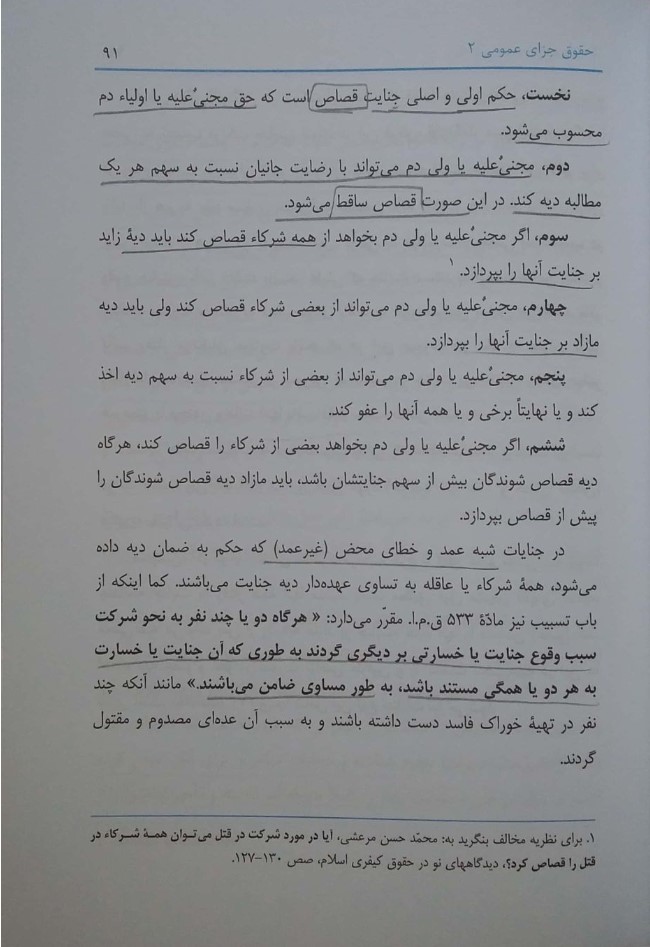 حقوق جزای عمومی ۲
۹۱
نخست، حکم اولی و اصلی جنایت قصاص است که حق مجنیٌ‌علیه یا اولیاء دم
محسوب می‌شود.
دوم، مجنیٌ‌علیه یا ولی دم می‌تواند با رضایت جانیان نسبت به سهم هر یک
مطالبه دیه کند. در این صورت قصاص ساقط می‌شود.
سوم، اگر مجنیٌ‌علیه یا ولی دم بخواهد از همه شرکاء قصاص کند باید دیهٔ زاید
بر جنایت آنها را بپردازد.۱
چهارم، مجنیٌ‌علیه یا ولی دم می‌تواند از بعضی شرکاء قصاص کند ولی باید دیه
مازاد بر جنایت آنها را بپردازد.
پنجم، مجنیٌ‌علیه یا ولی دم می‌تواند از بعضی از شرکاء نسبت به سهم دیه اخذ
کند و یا نهایتاً برخی و یا همه آنها را عفو کند.
ششم، اگر مجنیٌ‌علیه یا ولی دم بخواهد بعضی از شرکاء را قصاص کند، هرگاه
دیه قصاص شوندگان بیش از سهم جنایتشان باشد، باید مازاد دیه قصاص شوندگان را
پیش از قصاص بپردازد.
در جنایات شبه عمد و خطای محض (غیرعمد) که حکم به ضمان دیه داده
می‌شود، همهٔ شرکاء یا عاقله به تساوی عهده‌دار دیه جنایت می‌باشند. کما اینکه از
باب تسبیب نیز مادّهٔ ۵۳۳ ق.م.ا. مقرّر می‌دارد: « هرگاه دو یا چند نفر به نحو شرکت
سبب وقوع جنایت یا خسارتی بر دیگری گردند به طوری که آن جنایت یا خسارت
به هر دو یا همگی مستند باشد، به طور مساوی ضامن می‌باشند.» مانند آنکه چند
نفر در تهیهٔ خوراک فاسد دست داشته باشند و به سبب آن عده‌ای مصدوم و مقتول
گردند.
۱. برای نظریه مخالف بنگرید به: محمّد حسن مرعشی، آیا در مورد شرکت در قتل می‌توان همهٔ شرکاء در
قتل را قصاص کرد؟، دیدگاههای نو در حقوق کیفری اسلام، صص ۱۳۰-۱۲۷.